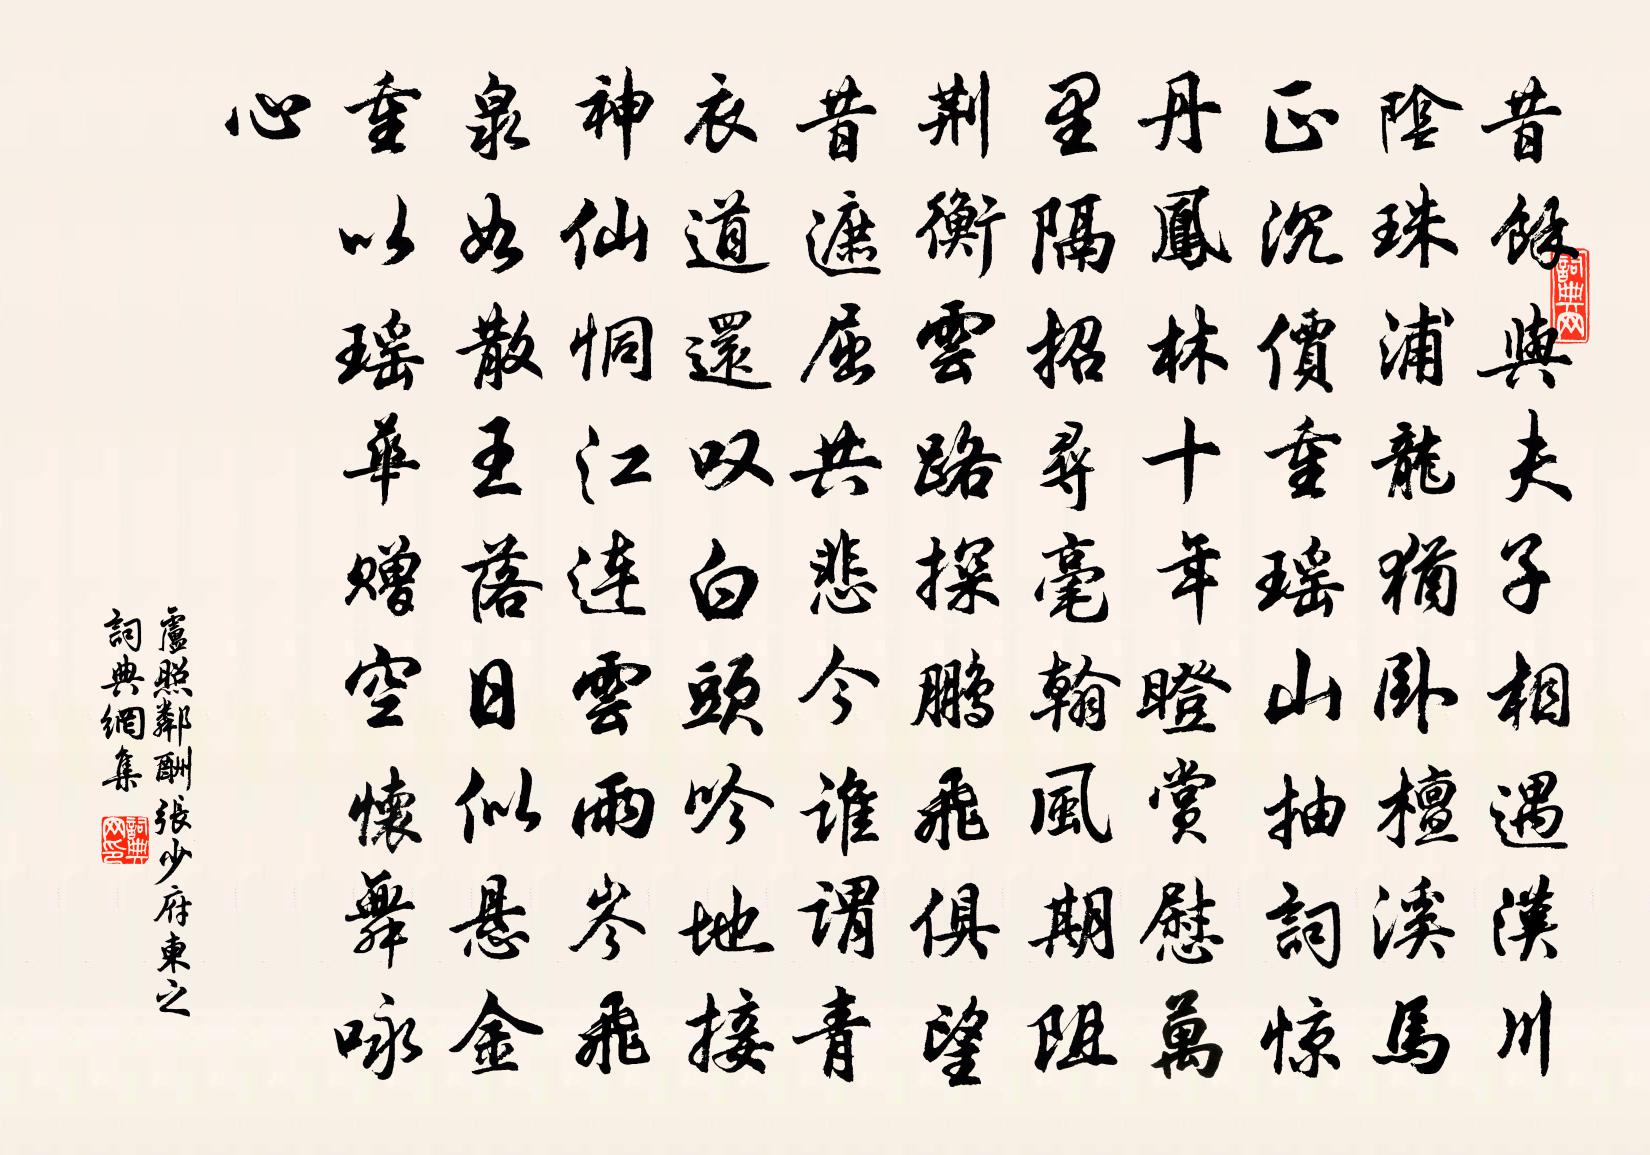 昔餘與夫子相遇漢川
陰珠浦龍猶卧檀溪馬
正沉價重瑶山抽詞惊
丹鳳林十年瞪賞慰萬
里隔招尋毫翰風期阻
荆衡雲路探鹏飛俱望
昔遮屈共悲今誰謂青
衣道還叹白頭吟地接
神仙恫江連雲雨岑飛
泉如散玉落日似悬金
重以瑶華赠空懷舞咏
心
盧照鄰酬張少府東之
詞典網集
詞典网
詞典网印